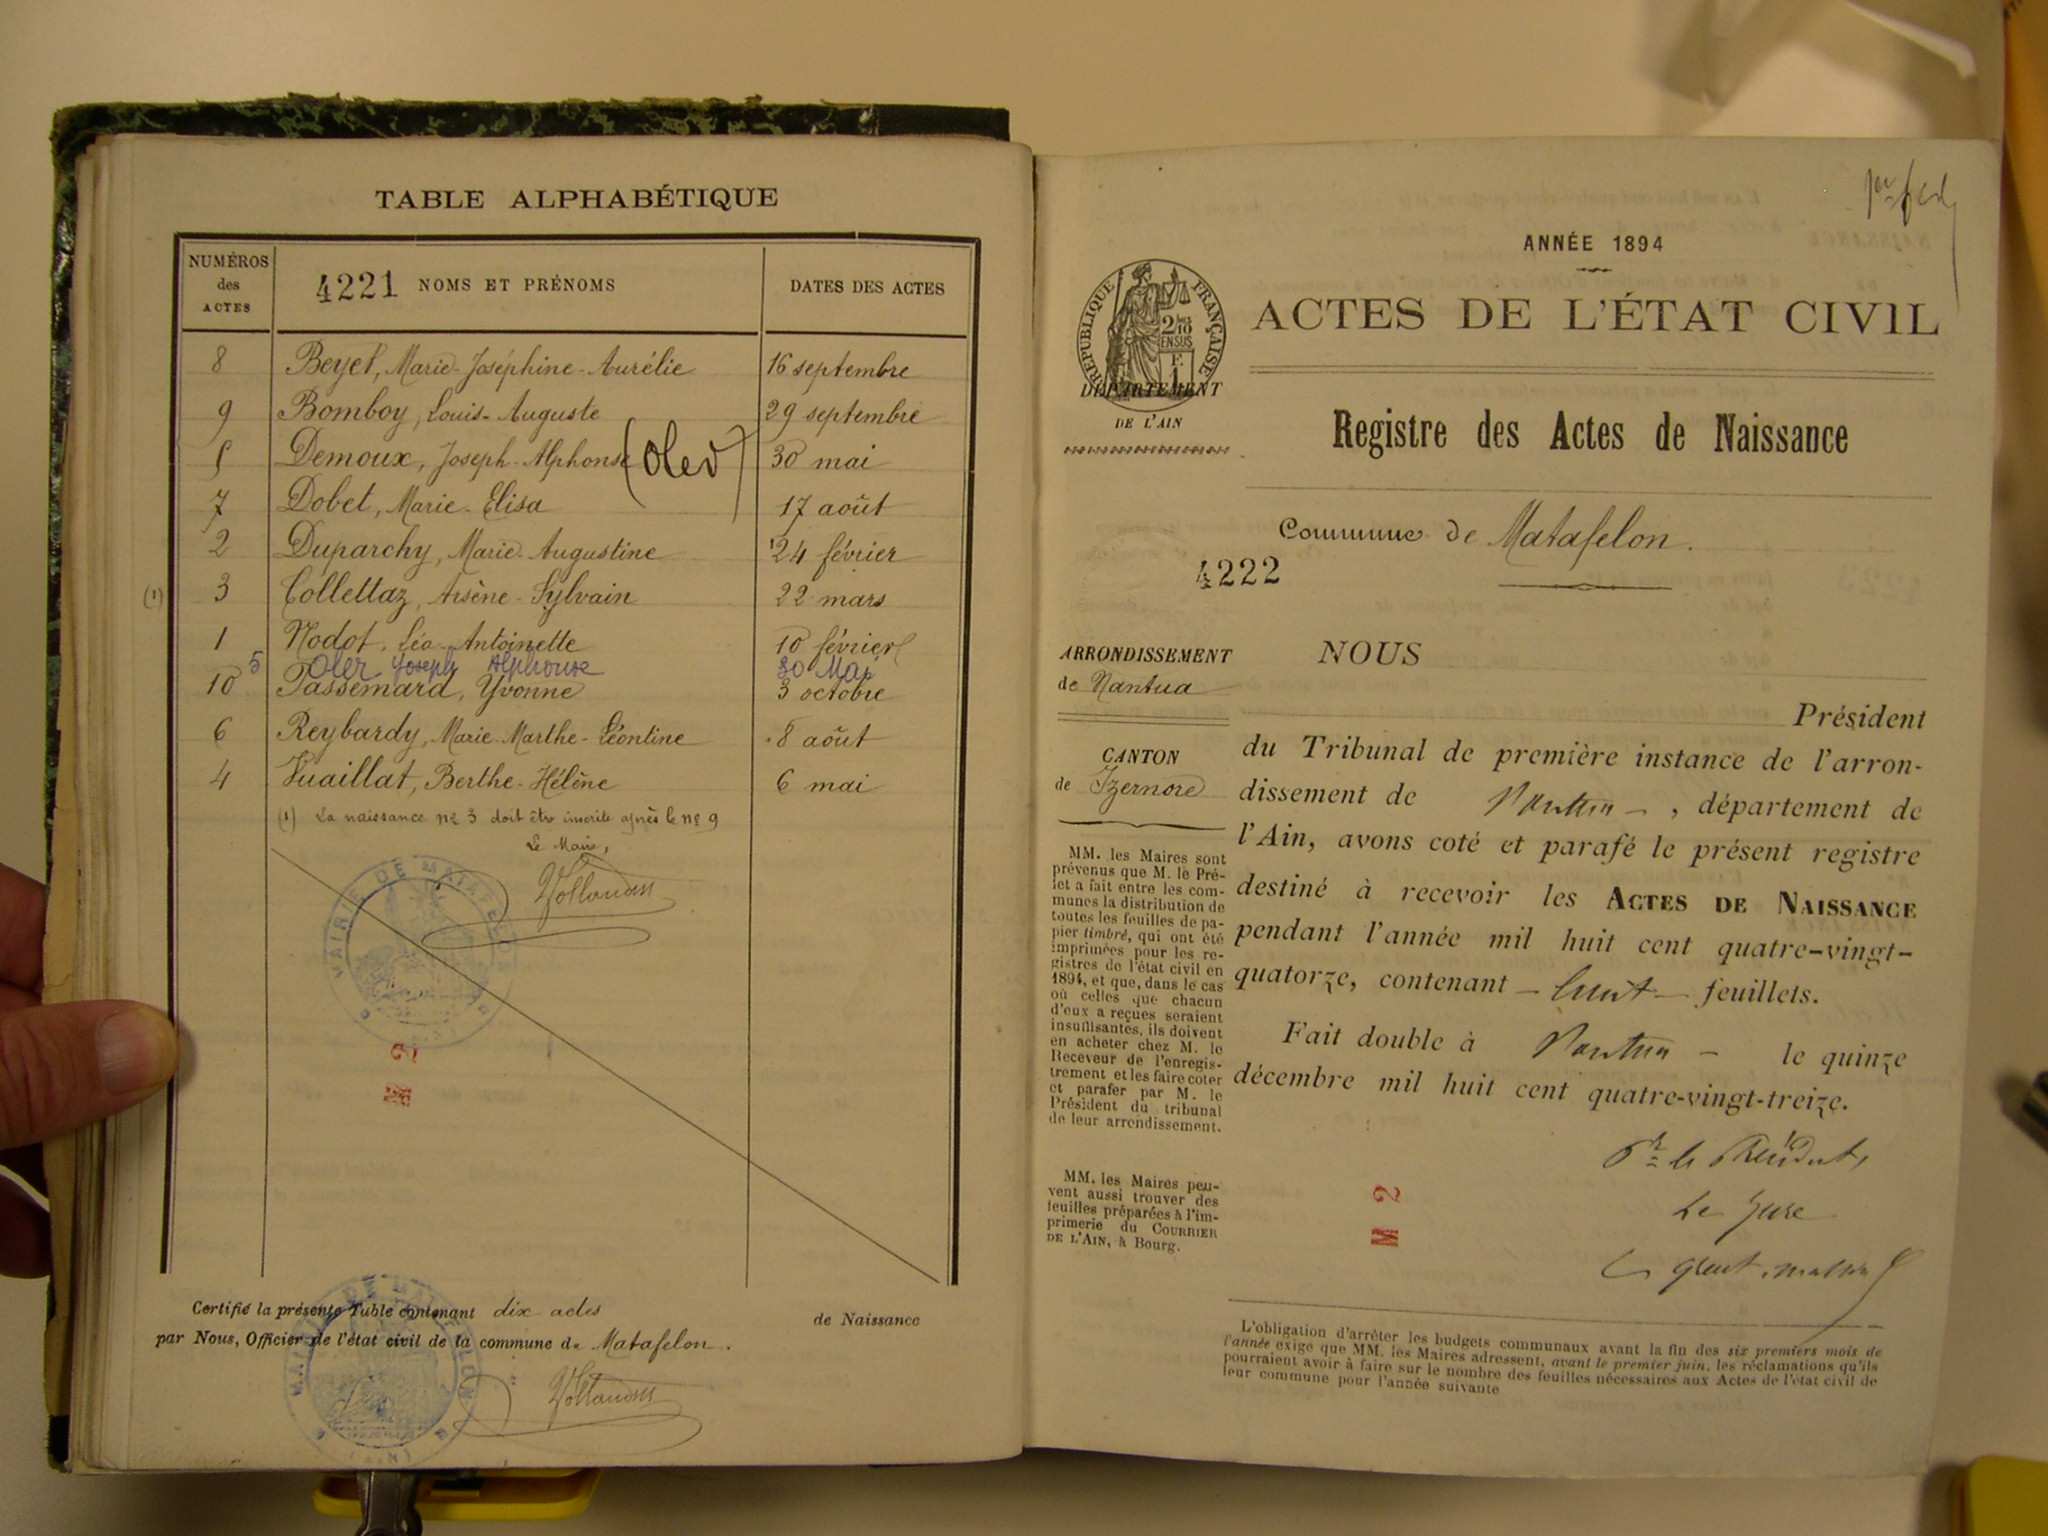 TABLE ALPHABÉTIQUE
NUMÉROS des ACTES
4221 NOMS ET PRÉNOMS
DATES DES ACTES
8 Beyet, Marie-Joséphine-Aurélie 16 septembre
9 Bomboy, Louis-Auguste 29 septembre
5 Demoux, Joseph-Alphonse (Oler) 30 mai
7 Dobet, Marie-Elisa 17 août
2 Duparchy, Marie-Augustine 24 février
(1) 3 Collettaz, Arsène-Sylvain 22 mars
1 Nodot, Léa-Antoinette 10 février
5 Oler Joseph Alphonse 30 Mai
10 Passemard, Yvonne 3 octobre
6 Reybardy, Marie-Marthe-Léontine 8 août
4 Vuaillat, Berthe-Hélène 6 mai
(1) La naissance no 3 doit être inscrite après le no 9
Le Maire,
MAIRIE DE MATAFELON
M 2
Certifié la présente Table contenant dix actes de Naissance
par Nous, Officier de l'état civil de la commune de Matafelon.
MAIRIE DE MATAFELON (AIN)
ANNÉE 1894
RÉPUBLIQUE FRANÇAISE
2/10 EN SUS
F. 1
DÉPARTEMENT
DE L'AIN
ACTES DE L'ÉTAT CIVIL
Registre des Actes de Naissance
Commune de Matafelon.
4222
ARRONDISSEMENT
de Nantua
CANTON
de Izernore
MM. les Maires sont
prévenus que M. le Pré-
fet a fait entre les com-
munes la distribution de
toutes les feuilles de pa-
pier timbré, qui ont été
imprimées pour les re-
gistres de l'état civil en
1894, et que, dans le cas
où celles que chacun
d'eux a reçues seraient
insuffisantes, ils doivent
en acheter chez M. le
Receveur de l'enregis-
trement et les faire coter
et parafer par M. le
Président du tribunal
de leur arrondissement.
MM. les Maires peu-
vent aussi trouver des
feuilles préparées à l'im-
primerie du COURRIER
DE L'AIN, à Bourg.
NOUS
Président
du Tribunal de première instance de l'arron-
dissement de Nantua, département de
l'Ain, avons coté et parafé le présent registre
destiné à recevoir les ACTES DE NAISSANCE
pendant l'année mil huit cent quatre-vingt-
quatorze, contenant huit feuillets.
Fait double à Nantua le quinze
décembre mil huit cent quatre-vingt-treize.
Pr le Président,
Le Juge
M 2
L'obligation d'arrêter les budgets communaux avant la fin des six premiers mois de
l'année exige que MM. les Maires adressent, avant le premier juin, les réclamations qu'ils
pourraient avoir à faire sur le nombre des feuilles nécessaires aux Actes de l'état civil de
leur commune pour l'année suivante